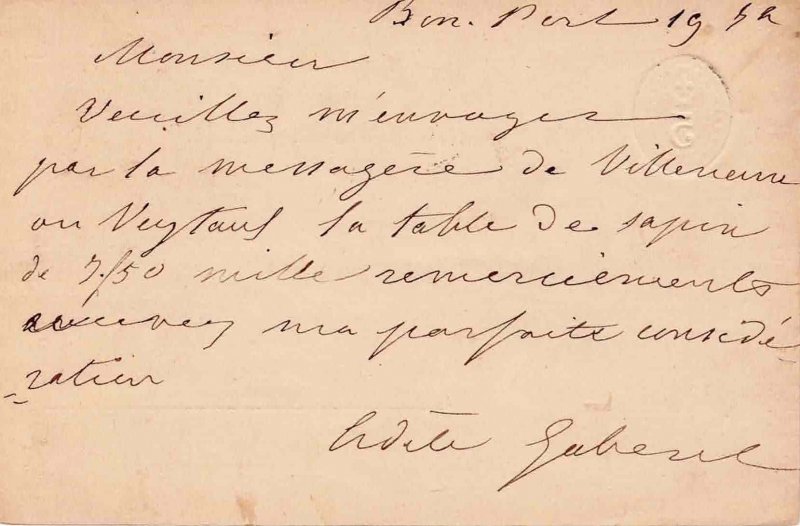 Bon. Port 19
Monsieur
Veuillez m'envoyer
par la messagère de Villeneuve
ou Veytaux la table de sapin
de 7f/50 mille remerciements
recevez ma parfaite considé-
-ration
Gaberel